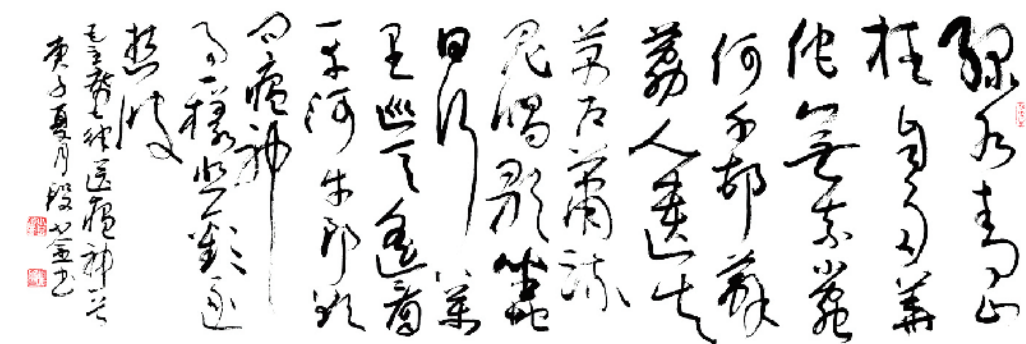 緑水青山
枉自多華
佗無奈小蟲
何千邨薜
荔人遗矢
萬户蕭疏
鬼唱歌坐地
日行八萬
里巡天遥看
一千河牛郎欲
问瘟神
事一樣悲歡逐
逝波
毛主席七律送瘟神
庚子夏月段金书